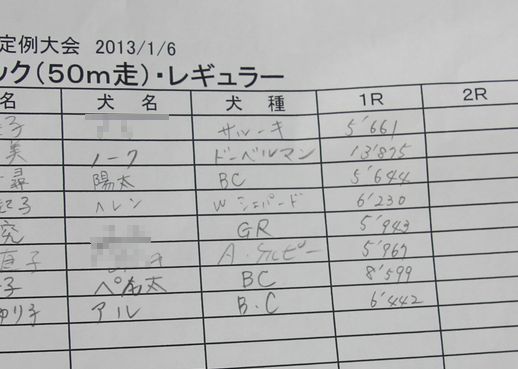 定例大会 2013/1/6
ック(50m走)・レギュラー
名 犬 名 犬 種 1R 2R
子 サルーキ 5'661
美 ノーク ドーベルマン 13'875
尋 陽太 BC 5'644
起子 ヘレン W シェパード 6'230
究 GR 5'943
直子 キ A・ケルピー 5'967
子 ペ太 BC 8'599
ゆり子 アル B.C 6'442